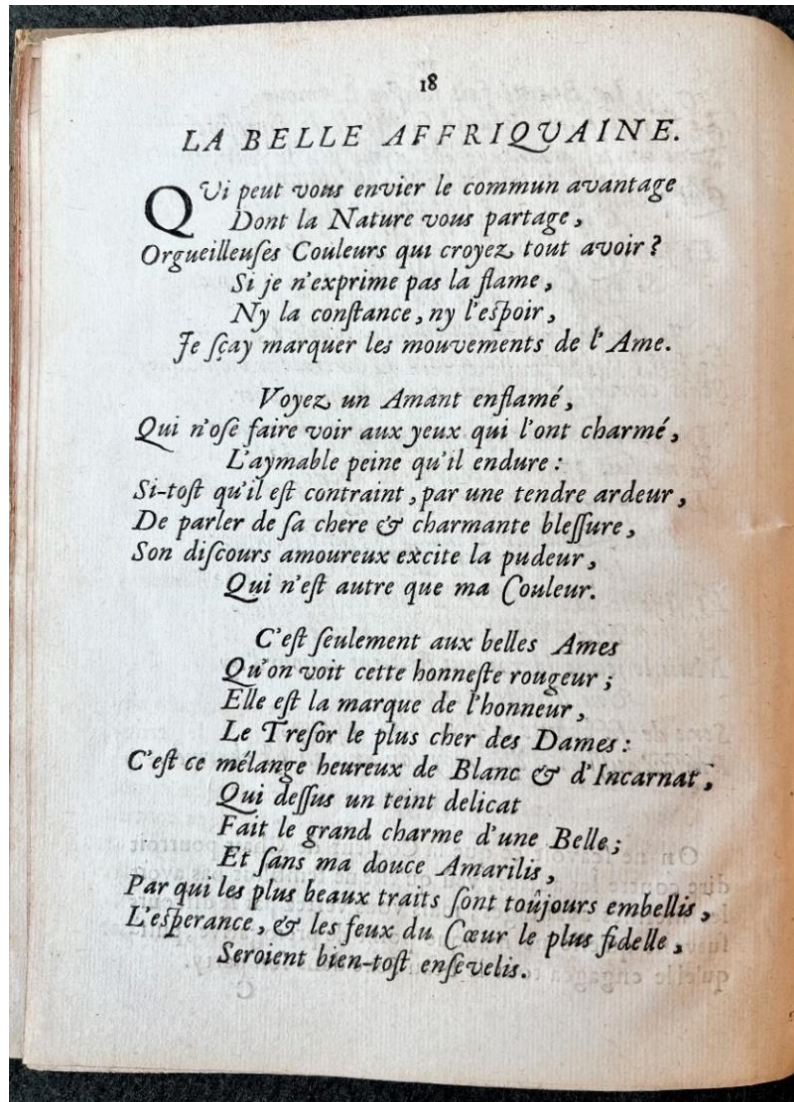 18
LA BELLE AFFRIQVAINE.
QVi peut vous envier le commun avantage
Dont la Nature vous partage,
Orgueilleuſes Couleurs qui croyez tout avoir?
Si je n'exprime pas la flame,
Ny la conſtance, ny l'eſpoir,
Je ſçay marquer les mouvements de l'Ame.
Voyez un Amant enflamé,
Qui n'oſe faire voir aux yeux qui l'ont charmé,
L'aymable peine qu'il endure:
Si-toſt qu'il eſt contraint, par une tendre ardeur,
De parler de ſa chere & charmante bleſſure,
Son diſcours amoureux excite la pudeur,
Qui n'eſt autre que ma Couleur.
C'eſt ſeulement aux belles Ames
Qu'on voit cette honneſte rougeur;
Elle eſt la marque de l'honneur,
Le Treſor le plus cher des Dames:
C'eſt ce mélange heureux de Blanc & d'Incarnat,
Qui deſſus un teint delicat
Fait le grand charme d'une Belle;
Et ſans ma douce Amarilis,
Par qui les plus beaux traits ſont toûjours embellis,
L'eſperance, & les feux du Cœur le plus fidelle,
Seroient bien-toſt enſevelis.